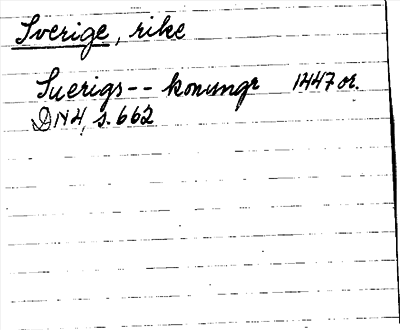 Sverige, rike
Suerigs -- konungr 1447 or.
DN 4, s. 662